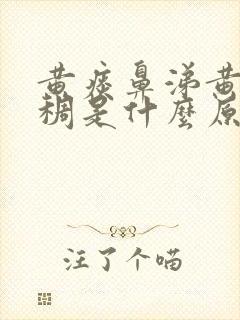 黄痰鼻涕黄
稠是什麼原
注了个喵